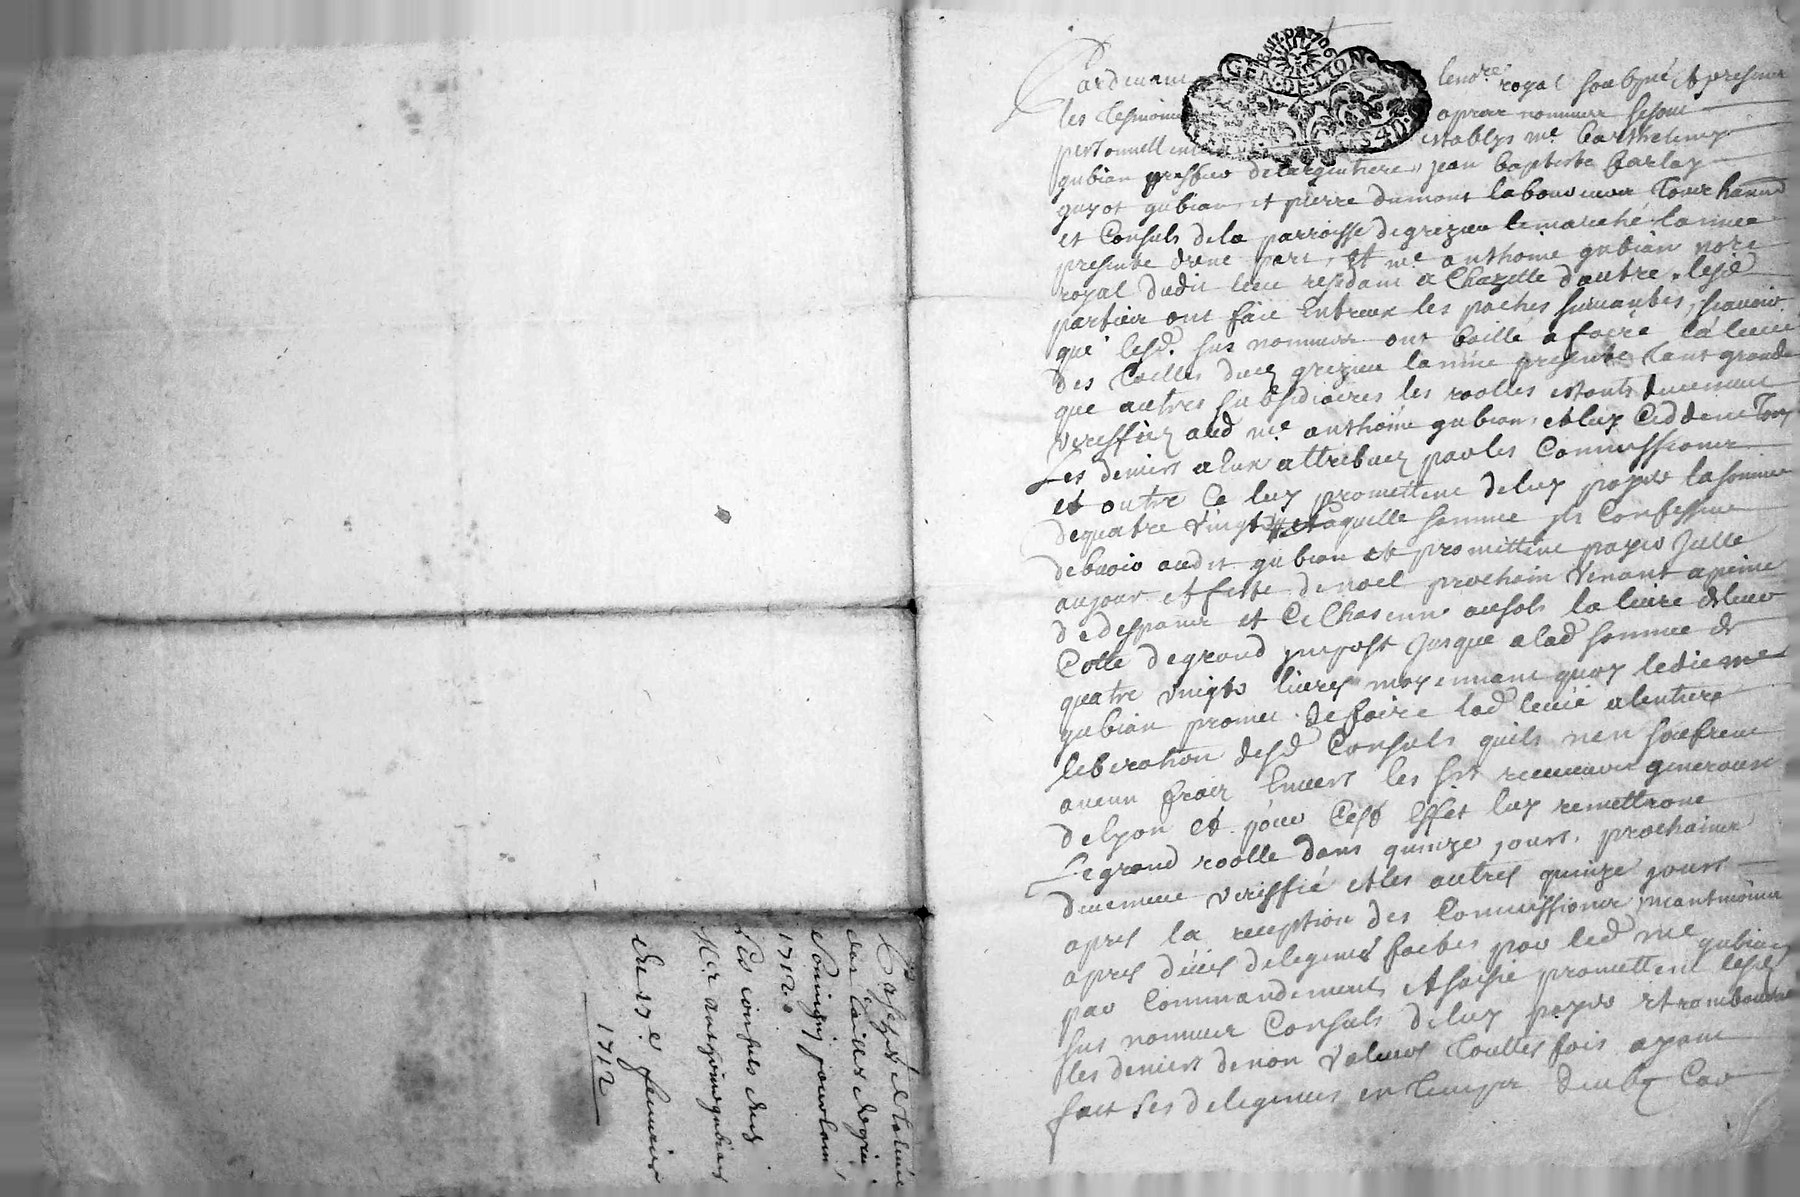 Pardevant le no.re royal soubsigné et presents
les tesmoins apres nommes se sont
personnellement establys me. barthelemy
gubian presbre delargentiere, jean baptiste barlay
guyot gubian et pierre dumont laboureurs
et Consuls dela parroisse degrezieu lemarché lannée
presente d'une part, Et me anthoine gubian no.re
royal dudit lieu residant a Chazelle d'autre. lesd.
parties ont faic Entreux les paches suivantes, scavoir
que lesd. sus nommes ont baillé a faire la levée
des tailles dud grezieu lannée presente tant grande
que autres subsidiaires les roolles estants deuement
veriffiez aud me. anthoine gubian, et luy Ceddent tous
Les deniers a Eux attribuez par les Commissions
et outre Ce luy promettent deluy payer la somme
de quatre vingt laquelle somme ils Confessent
debvoir audit gubian et promettent payer
aujour et feste de noel prochain venant a peine
de despans et Ce Chascun au sol la livre de leur
Cotte degrand impost jusque a lad somme de
quatre vingts livres moyennant quoy ledit me
gubian promet de faire lad levée a lentiere
liberation desd Consuls quils nen soufrent
aucun frais Envers les srs receveurs generaux
delyon et pour Cest Effet luy remettront
Le grand roolle dans quinze jours prochains
deuement veriffié et les autres quinze jours
apres la reception des Commissions,
apres dues deligences faites par led me gubian
par Commandement, et saisie promettent lesd
sus nommes Consuls deluy payer et rembourser
les deniers de non valeurs touttes fois ayant
fait ses deligences en temps deub Car
des tailles de grezieu
1712.
Les consuls dud
Mre anthoine gubian
du 17e. feuvrier
1712